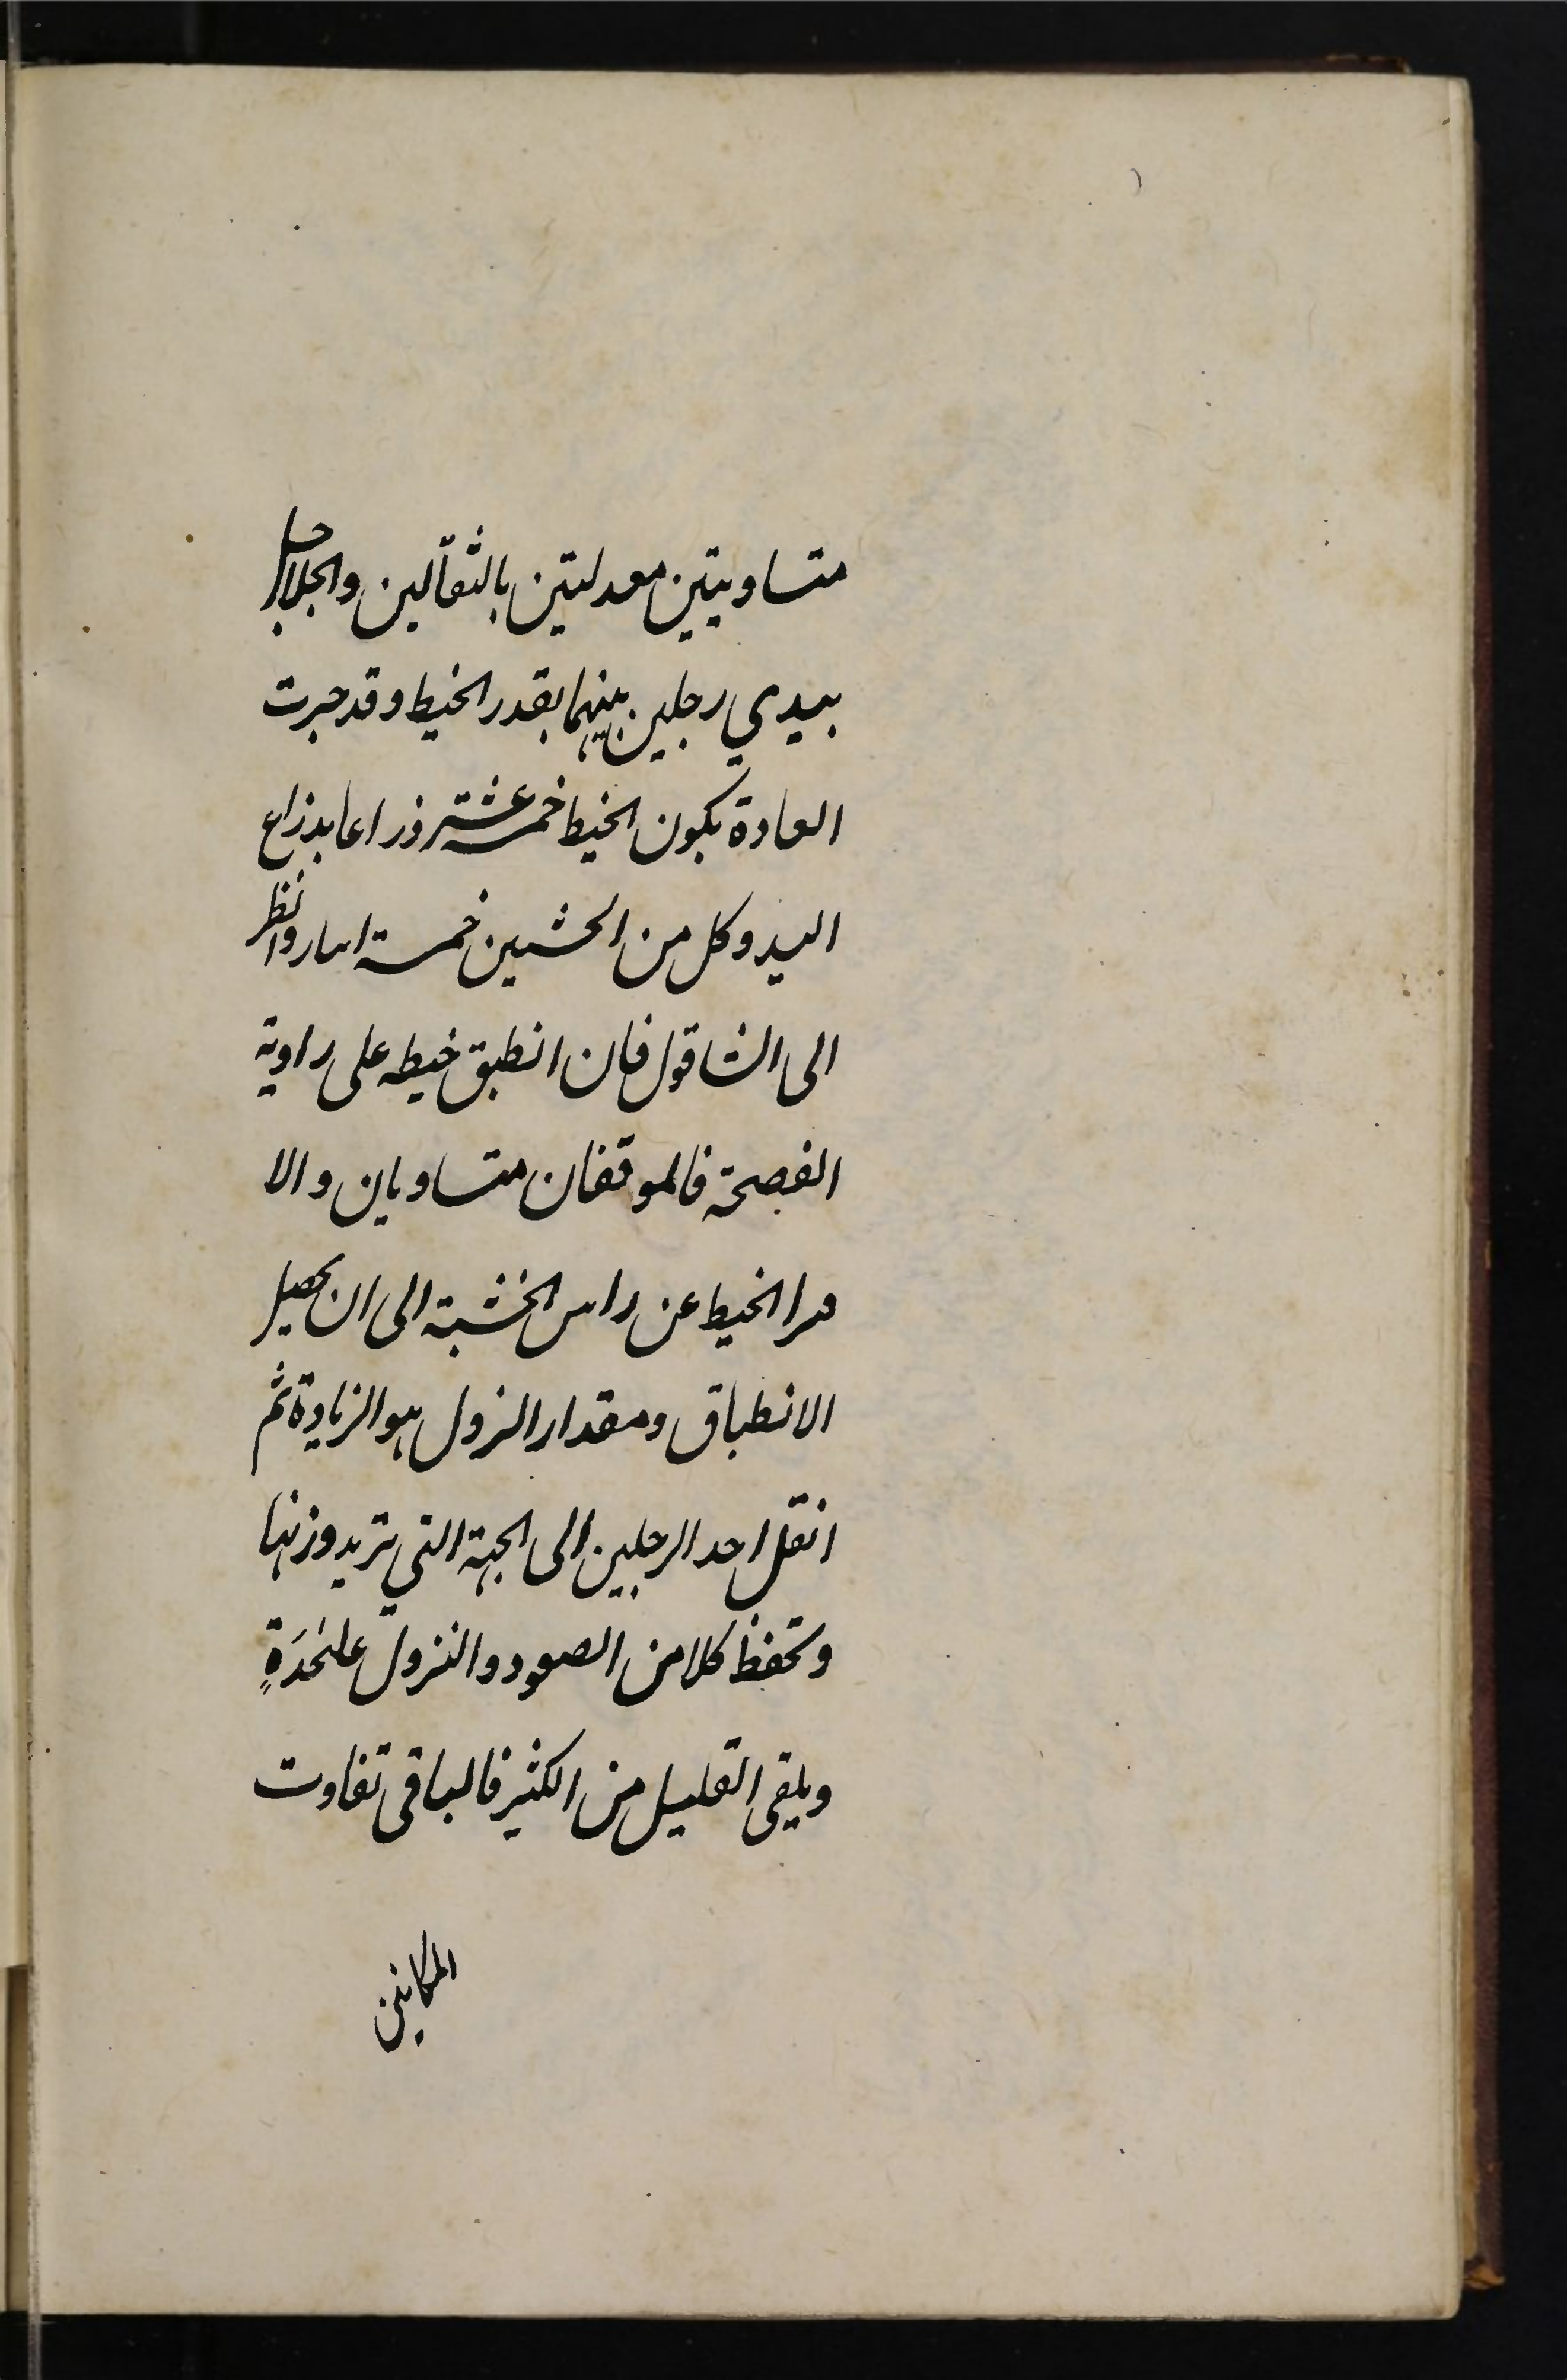 متساويتين معدلتين بالثقالين والجلاجل
بيدي رجلين بينهما بقدر الخيط وقد جرت
العادة بكون الخيط خمسة عشر ذراعا بذراع
اليد وكل من الخشبتين خمسة اشبار وانظر
الى الشاقول فان انطبق خيطه على زاوية
الفصحة فالموقفان متساويان والا
مرا الخيط عن راس الخشبة الى ان يحصل
الانطباق ومقدار النزول هو الزيادة ثم
انقل احد الرجلين الى الجهة التي تريد وزنها
وتحفظ كلا من الصعود والنزول علىٰحدَةٍ
ويلقى القليل من الكثير فالباقى تفاوت
المكانين